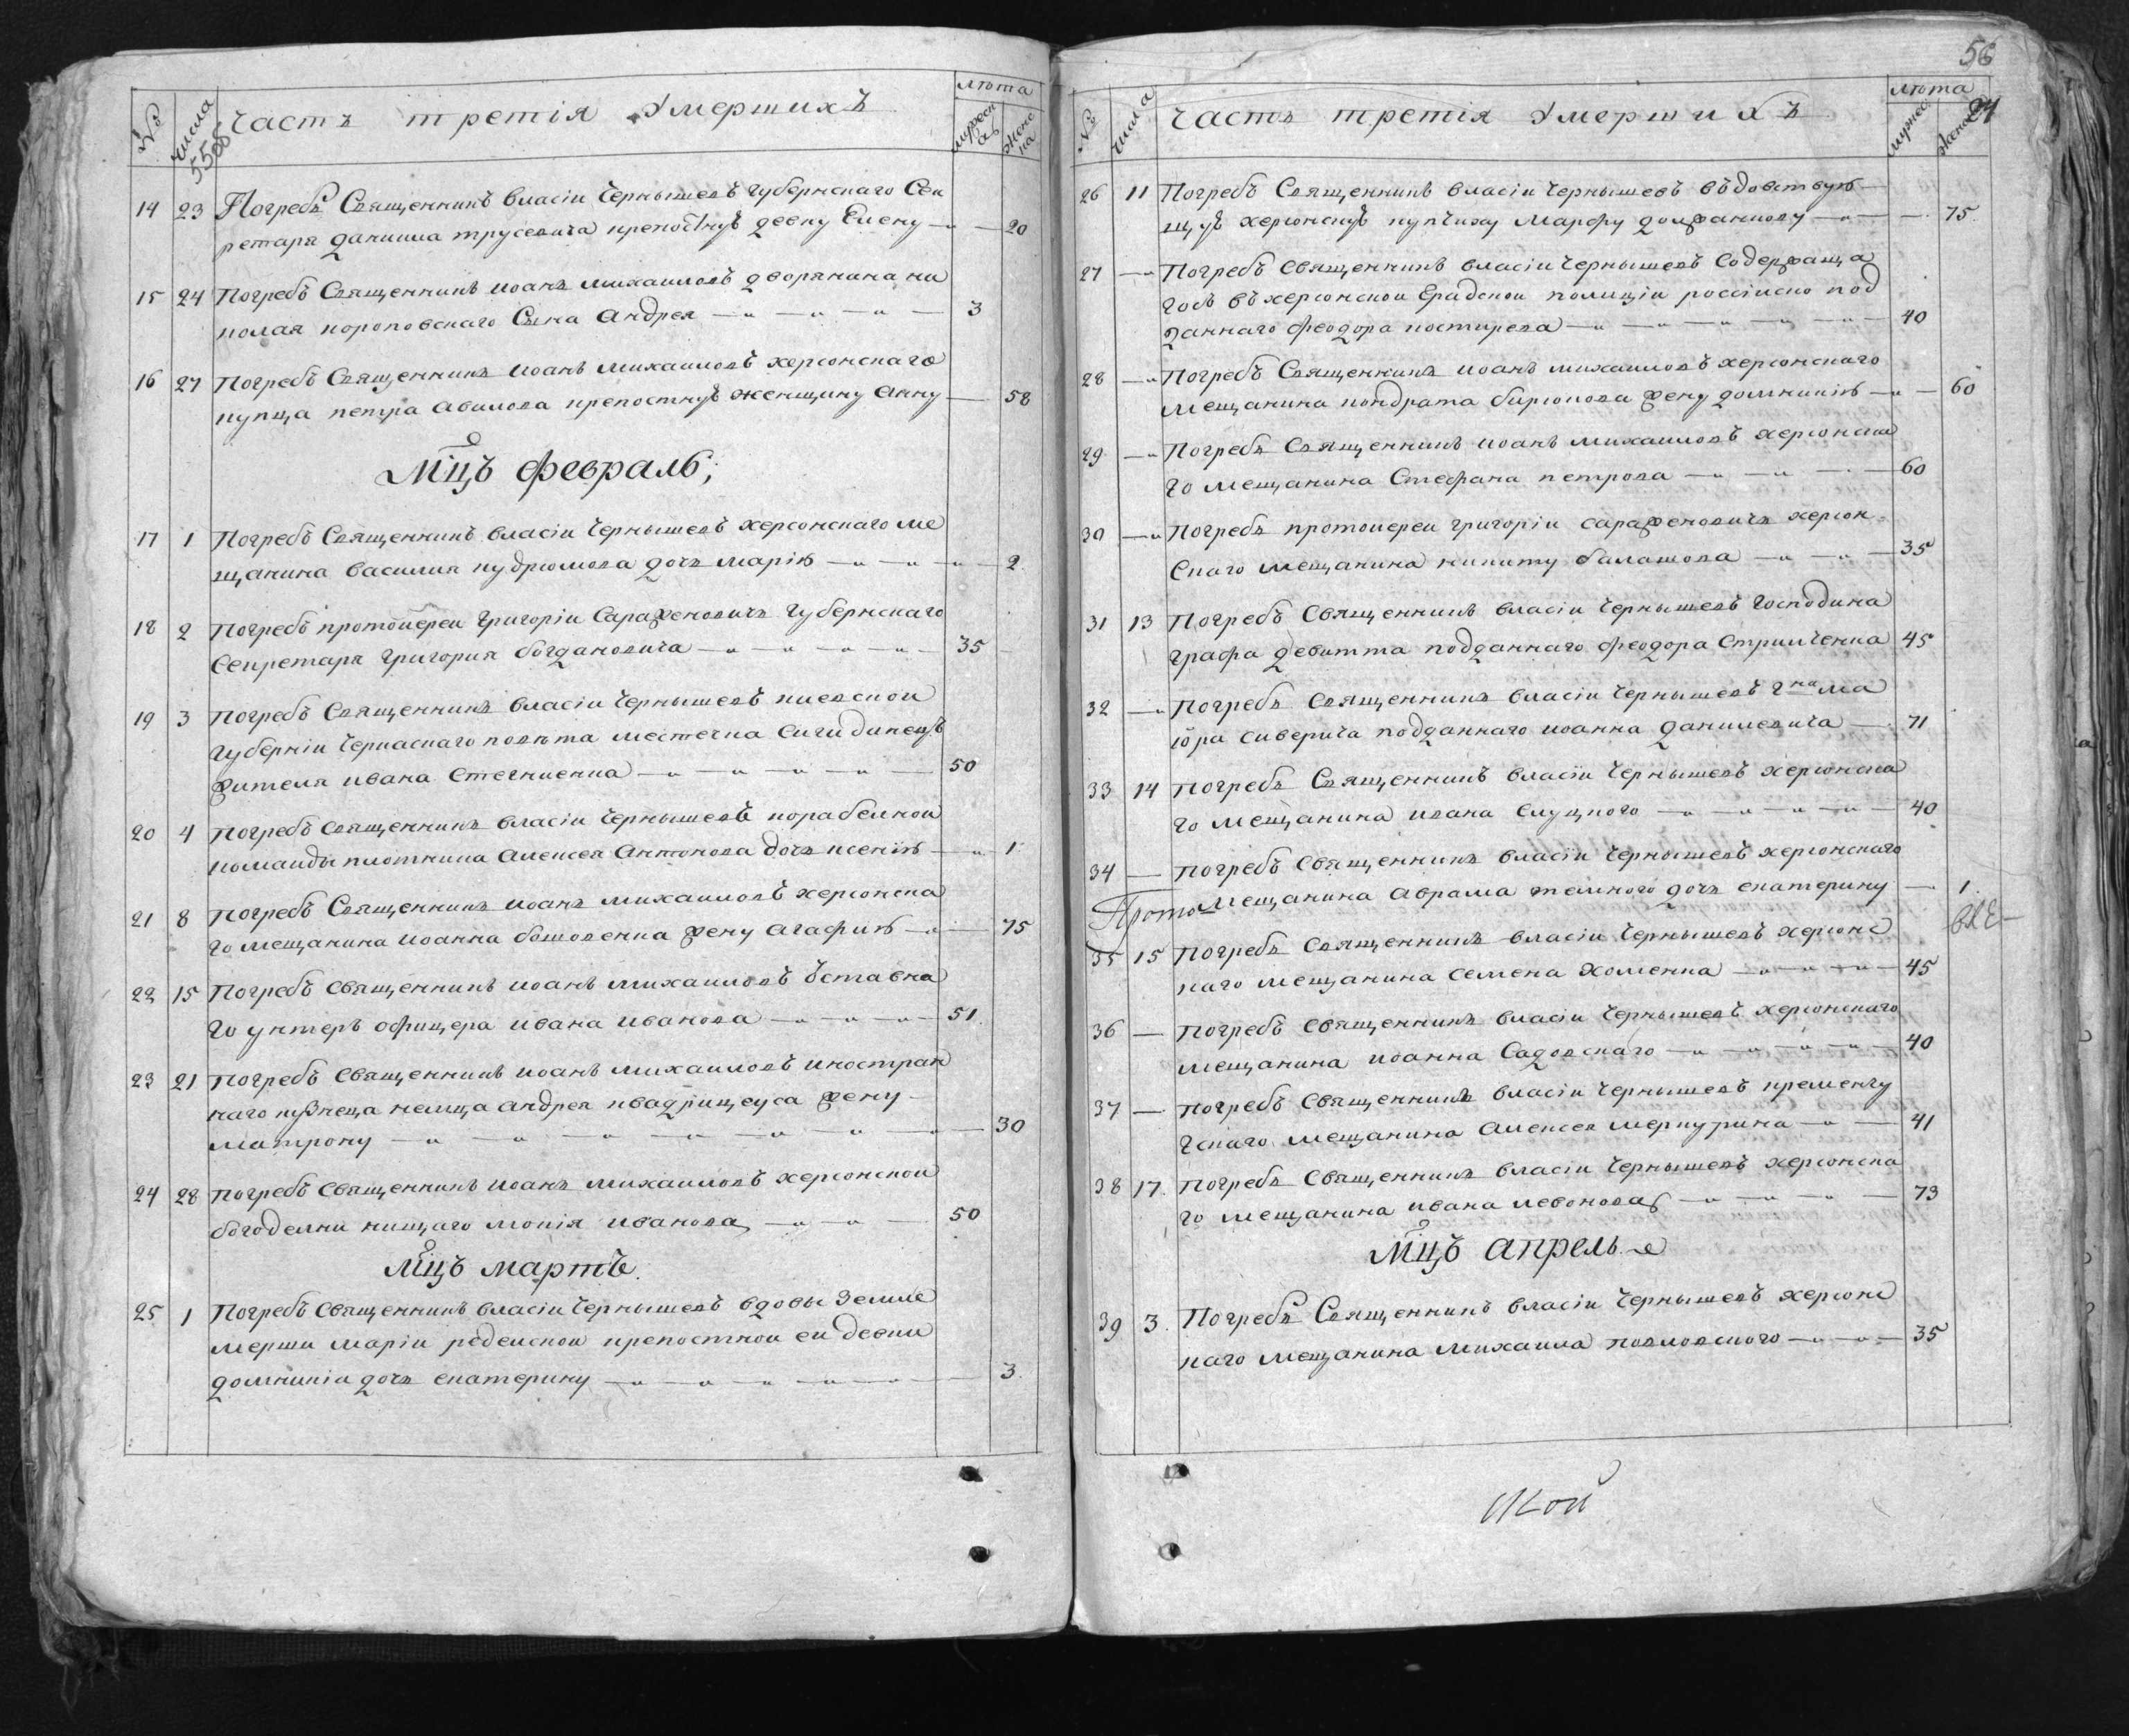 № числа Часть третія Умершихъ лѣта мужеска женска
14 23 Погребъ Священникъ власіи Чернышевъ губернскаго Сек
ретаря данiила трусевича крепостную девку Елену 20
15 24 Погребъ Священникъ иоанъ михаиловъ дворянина ни
колая короповскаго Сына Андрея 3
16 27 Погребъ Священникъ иоанъ михаиловъ херсонскаго
купца петра авилова крепостную женщину анну 58
Мцъ февраль;
17 1 Погребъ Священникъ власіи Чернышевъ херсонскаго ме
щанина василия кудрюмова дочь марію 2
18 2 Погребъ протоиереи григоріи Сараженовичъ губернскаго
Секретаря григория богдановича 35
19 3 Погребъ Священникъ власіи Чернышевъ киевскои
губерніи Черкаскаго повѣта местечка
жителя ивана Стегниенка 50
20 4 Погребъ Священникъ власіи Чернышевъ корабелнои
команды плотника алексея антонова дочь ксенію 1
21 8 Погребъ Священникъ иоанъ михаиловъ херсонска
го мещанина иоанна жену агафию 75
22 15 Погребъ священникъ иоанъ михаиловъ ѿставна
го унтеръ офицера ивана иванова 51
23 21 Погребъ священникъ иоанъ михаиловъ иностран
наго кузнеца немца андрея жену
матрону 30
24 28 Погребъ священникъ иоанъ михаиловъ херсонскои
богоделни нищаго мокія иванова 50
Мцъ мартъ.
25 1 Погребъ священникъ власіи Чернышевъ вдовы землѣ
мерши маріи редескои крепостнои еи девки
домникіи дочь екатерину 3
56
24
№ числа Часть третія Умершихъ лѣта мужес женс
26 11 Погребъ Священникъ власіи Чернышевъ вѣдовствую
щую херсонскую купчиху Марфу должанкову 75
27 Погребъ священникъ власіи Чернышевъ Содержаща
гось въ херсонскои Градскои полиціи россіиско под
даннаго феодора костирева 40
28 Погребъ Священникъ иоанъ михаиловъ херсонскаго
мещанина кондрата бирюкова жену домникію 60
29 Погребъ Священникъ иоанъ михаиловъ херсонска
го мещанина Стефана петрова 60
30 Погребъ протоиереи григоріи сараженовичъ херсон
Скаго мещанина никиту балашова 35
31 13 Погребъ Священникъ власіи Чернышевъ господина
графа девитта подданнаго феодора Стрилченка 45
32 Погребъ Священникъ власіи Чернышевъ гна ма
іора сиверича подданнаго иоанна данилевича 71
33 14 Погребъ Священникъ власіи Чернышевъ херсонска
го мещанина ивана Слуцкого 40
34 Погребъ священникъ власіи Чернышевъ херсонскаго
мещанина аврама темного дочь екатерину 1
Прото
35 15 Погребъ Священникъ власіи Чернышевъ херсонс
каго мещанина семена хоменка 45
36 Погребъ священникъ власіи Чернышевъ херсонскаго
мещанина иоанна Садовскаго 40
37 Погребъ священникъ власіи Чернышевъ кременчу
гскаго мещанина алексея меркурина 41
38 17 Погребъ священникъ власіи Чернышевъ херсонска
го мещанина ивана левонова 73
Мцъ апрель
39 3 Погребъ Священникъ власіи Чернышевъ херсонс
каго мещанина михаила повловского 35